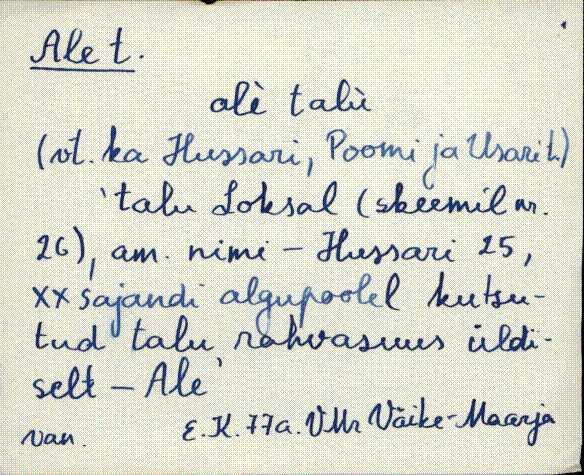 Ale t.
alè talù
(vt. ka Hussari, Poomi ja Usari t.)
'talu Loksal (skeemil nr.
26), am. nimi – Hussari 25,
XX sajandi algupoolel kutsu-
tud talu rahvasuus üldi-
selt – Ale'
van. E.K. 77a. VMr Väike-Maarja